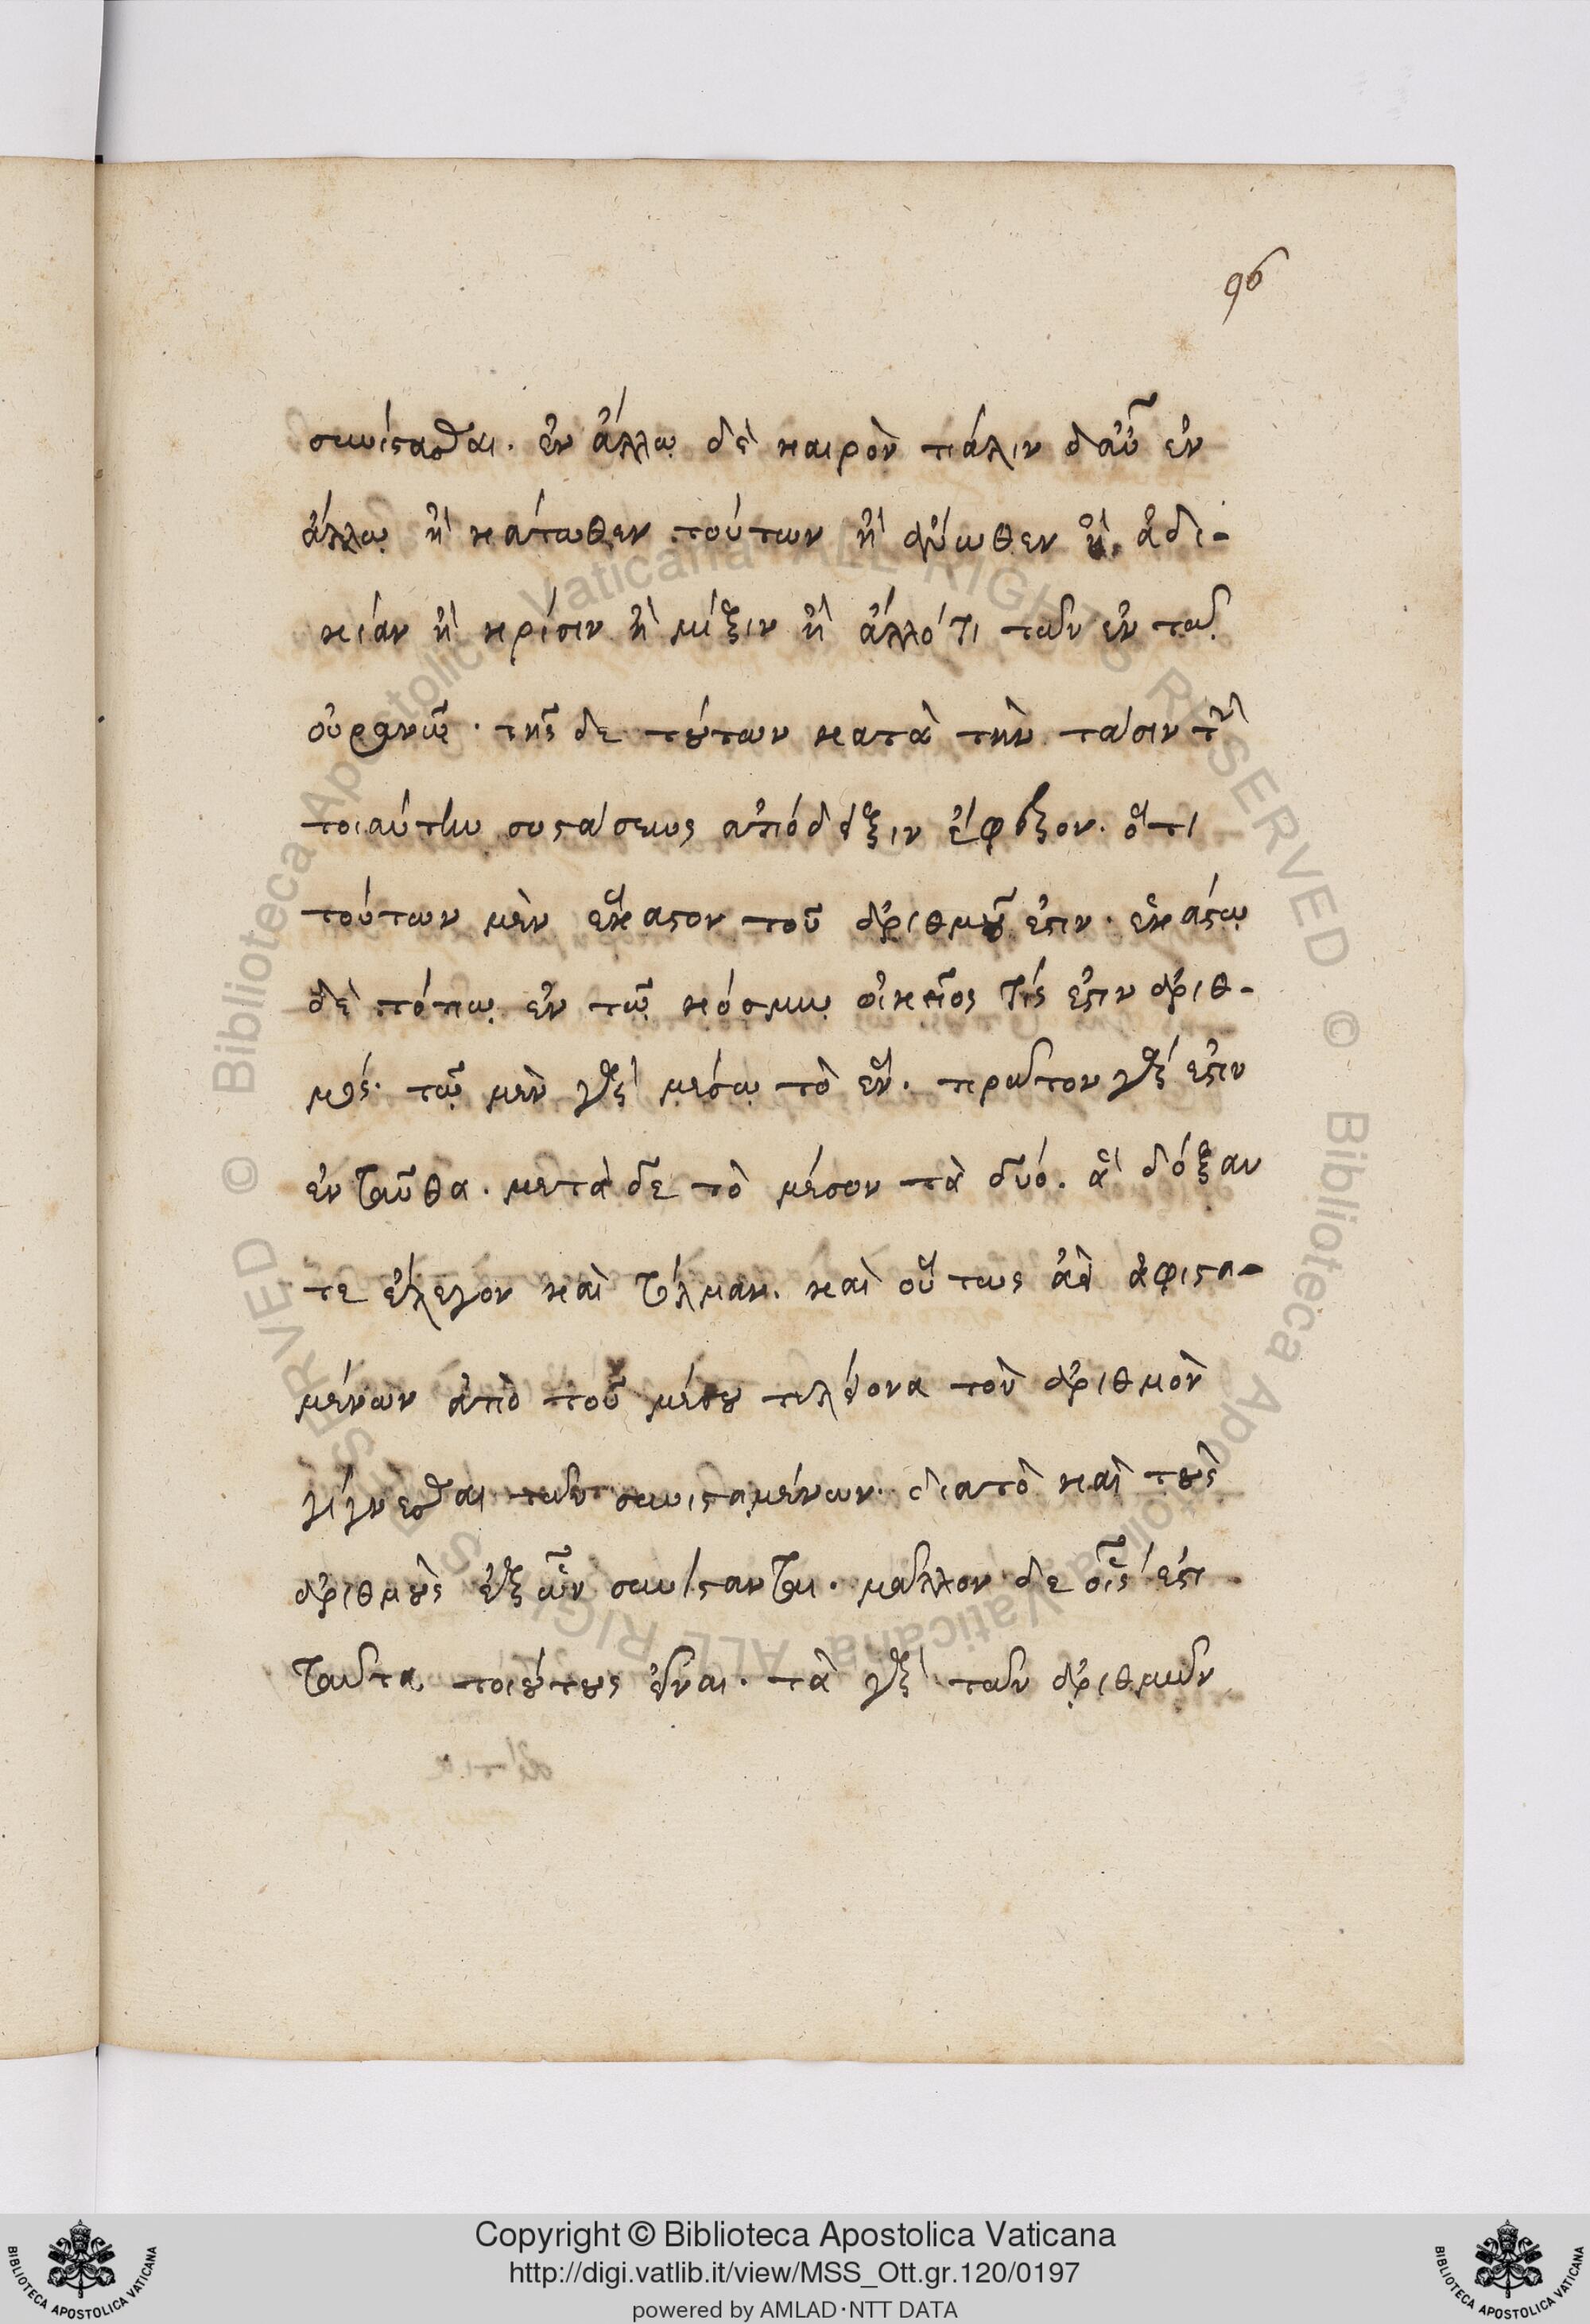 96
συνίστασθαι. ἐν ἄλλῳ δὲ καιρὸν πάλιν δ' αὖ ἐν
ἄλλῳ ἢ κάτωθεν τούτων ἢ ἄνωθεν ἢ ἀδι-
κίαν ἢ κρίσιν ἢ μίξιν ἢ ἄλλό τι τῶν ἐν τῶ
οὐρανῷ. τῆς δε τούτων κατὰ τὴν τάσιν τ
τοιαύτην συστάσεως ἀπόδειξιν ἔφραζον. ὅτι
τούτων μὲν ἕκαστον τοῦ ἀριθμοῦ ἐστιν. ἑκάστῳ
δὲ τόπῳ ἐν τῷ κόσμῳ οἰκεῖος τίς ἐστιν ἀριθ-
μός. τῷ μὲν γὰρ μέσῳ τὸ ἕν. πρῶτον γάρ ἐστιν
ἐνταῦθα. μετὰ δε τὸ μέσον τὰ δύο. ἃ δόξαν
τε ἔλεγον καὶ τόλμαν. καὶ οὕτως ἀεὶ ἀφιστα-
μένων ἀπὸ τοῦ μέσου πλείονα τὸν ἀριθμὸν
γίγνεσθαι τῶν συνισταμένων. διατὸ καὶ τοὺς
ἀριθμοὺς ἐξ ὧν συνίστανται. μᾶλλον δε οἷς ἐστι
ταῦτα τοιούτους εἶναι. τὰ γὰρ τῶν ἀριθμῶν
Copyright © Biblioteca Apostolica Vaticana
http://digi.vatlib.it/view/MSS_Ott.gr.120/0197
powered by AMLAD·NTT DATA
BIBLIOTECA APOSTOLICA VATICANA
BIBLIOTECA APOSTOLICA VATICANA
© Biblioteca Apostolica Vaticana ALL RIGHTS RESERVED
© Biblioteca Apostolica Vaticana ALL RIGHTS RESERVED